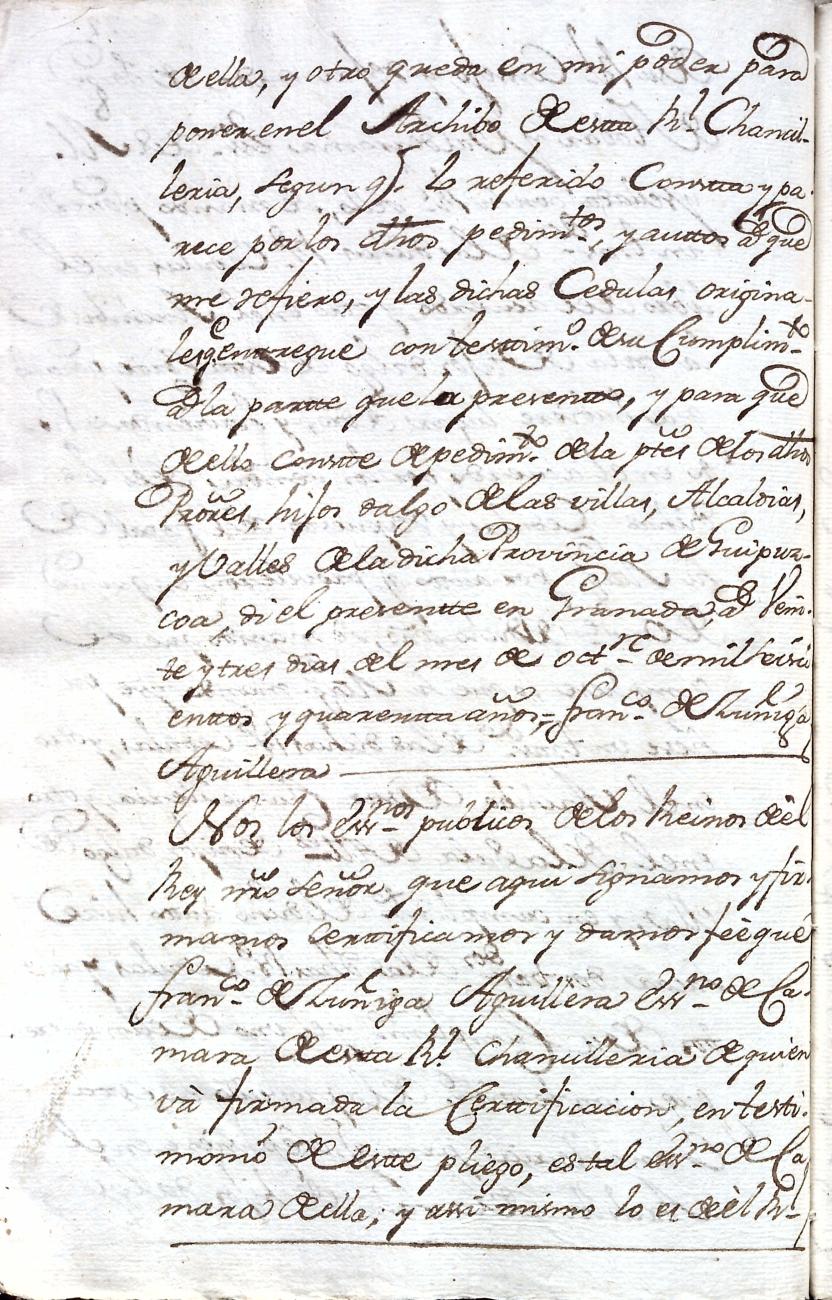 de ella, y otro queda en mi poder para
poner en el Archibo de estta Rl. Chancil-
leria, segun q. lo referido Constta y pa-
rece por los dhos pedimtos, y auttos à que
me refiero, y las dichas Cedulas origina-
les, enttregue con testtimo. de su Cumplimto
à la partte que la presentto, y para que
de ello constte de pedimto. de la ptes de los dhos
Prôres, hijos dalgo de las villas, Alcaldias,
y Valles de la dicha Provincia de Guipuz-
coa, di el presentte en Granada, à Vein-
te y tres dias del mes de octre de mil seisci
enttos y quarentta años,= Franco. de Zuñiga
Aguillera
Nos los Essnos publicos de los Reinos del
Rey nro señor que aqui signamos y fir-
mamos serttificamos y damos feè que
Franco. de Zuñiga Aguillera Essno de Ca-
mara de esta Rl. Chancilleria de quien
và firmada la Certtificacion, en testi-
monio de estte pliego, es tal Essno de Ca
mara de ella; y assi mismo lo es dèl Rl